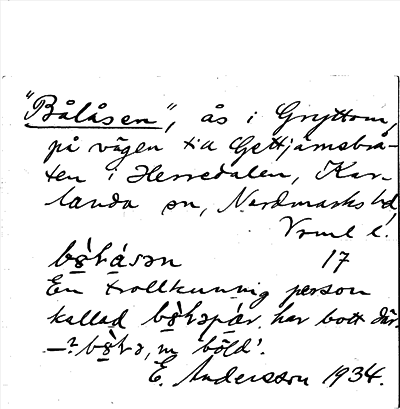 "Bålåsen", ås i Gryttom,
på vägen till Gettjärnsbrå-
ten i Herredalen, Kar-
landa sn, Nordmarks hd,
Vrml l.
17
En trollkunnig person
kallad har bott där.
"böld".
E. Andersson 1934.